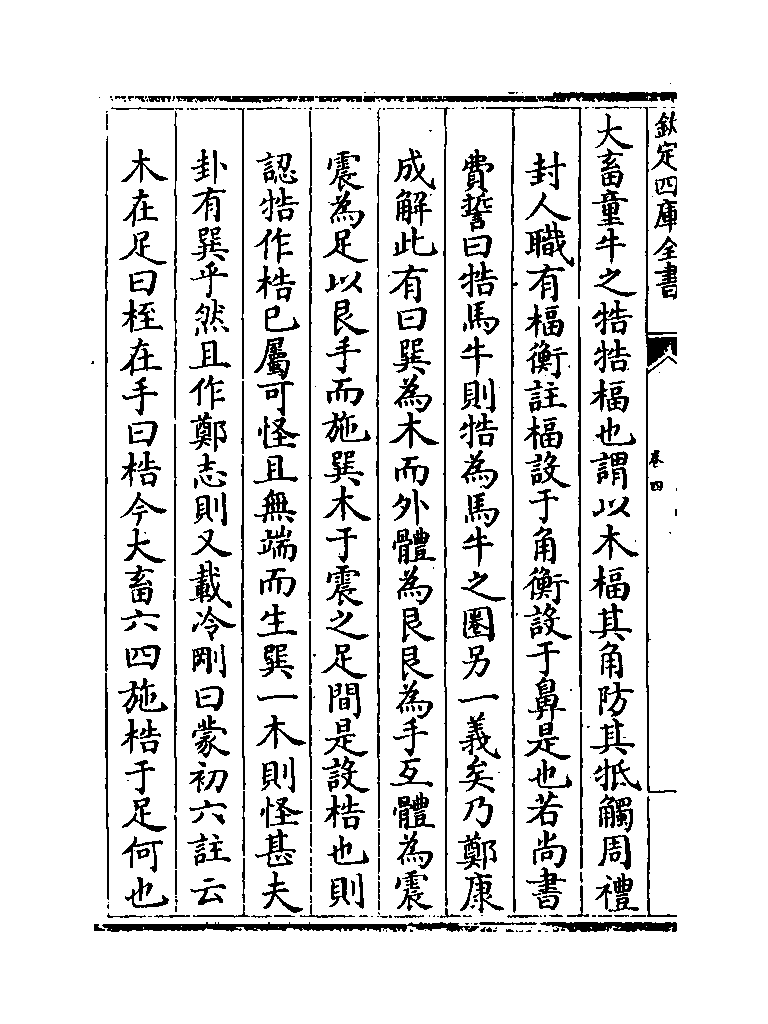 欽定四庫全書
卷四
大畜童牛之牿牿楅也謂以木楅其角防其牴觸周禮
封人職有楅衡註楅設于角衡設于鼻是也若尚書
費誓曰牿馬牛則牿為馬牛之圈另一義矣乃鄭康
成解此有曰巽為木而外體為艮艮為手互體為震
震為足以艮手而施巽木于震之足間是設梏也則
認牿作梏已屬可怪且無端而生巽一木則怪甚夫
卦有巽乎然且作鄭志則又載冷剛曰蒙初六註云
木在足曰桎在手曰梏今大畜六四施梏于足何也